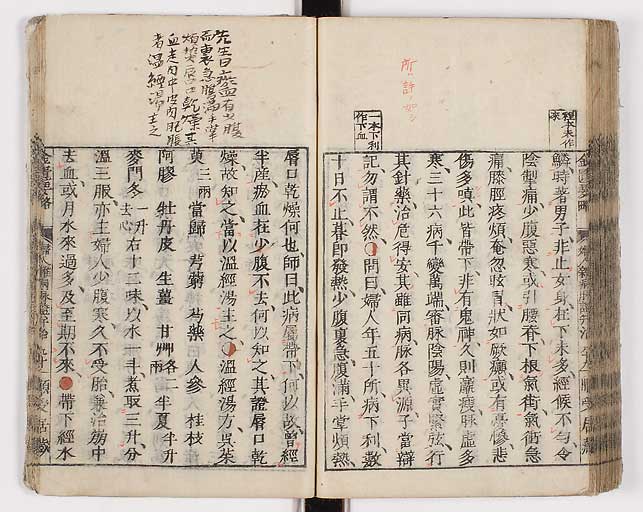 鱗時著男子非止女身在下未多經候不勻令
陰掣痛少腹惡寒或引腰脊下根氣街氣衝急
痛膝脛疼煩奄忽眩冒狀如厥癲或有憂慘悲
傷多嗔此皆帶下非有鬼神久則羸瘦脉虛多
寒三十六病千變萬端審脉陰陽虛實緊弦行
其針藥治危得安其雖同病脉各異源子當辯
記勿謂不然問曰婦人年五十所病下利數
十日不止暮即發熱少腹裏急腹滿手掌煩熱
一本下利
作下血
所許如シ
唇口乾燥何也師曰此病屬帶下何以故曾經
半產瘀血在少腹不去何以知之其證唇口乾
燥故知之當以溫經湯主之溫經湯方吳茱
萸三兩 當歸 芎藭 芍藥 人參 桂枝
阿膠 牡丹皮 生薑 甘艸各二兩 半夏半升
麥門冬一升去心 右十三味以水一斗煮取三升分
溫三服亦主婦人少腹寒久不受胎兼治崩中
去血或月水來過多及至期不來帶下經水
先生曰瘀血有少腹
而裏急腹滿手掌
煩熱唇口乾燥其
者溫經湯主之